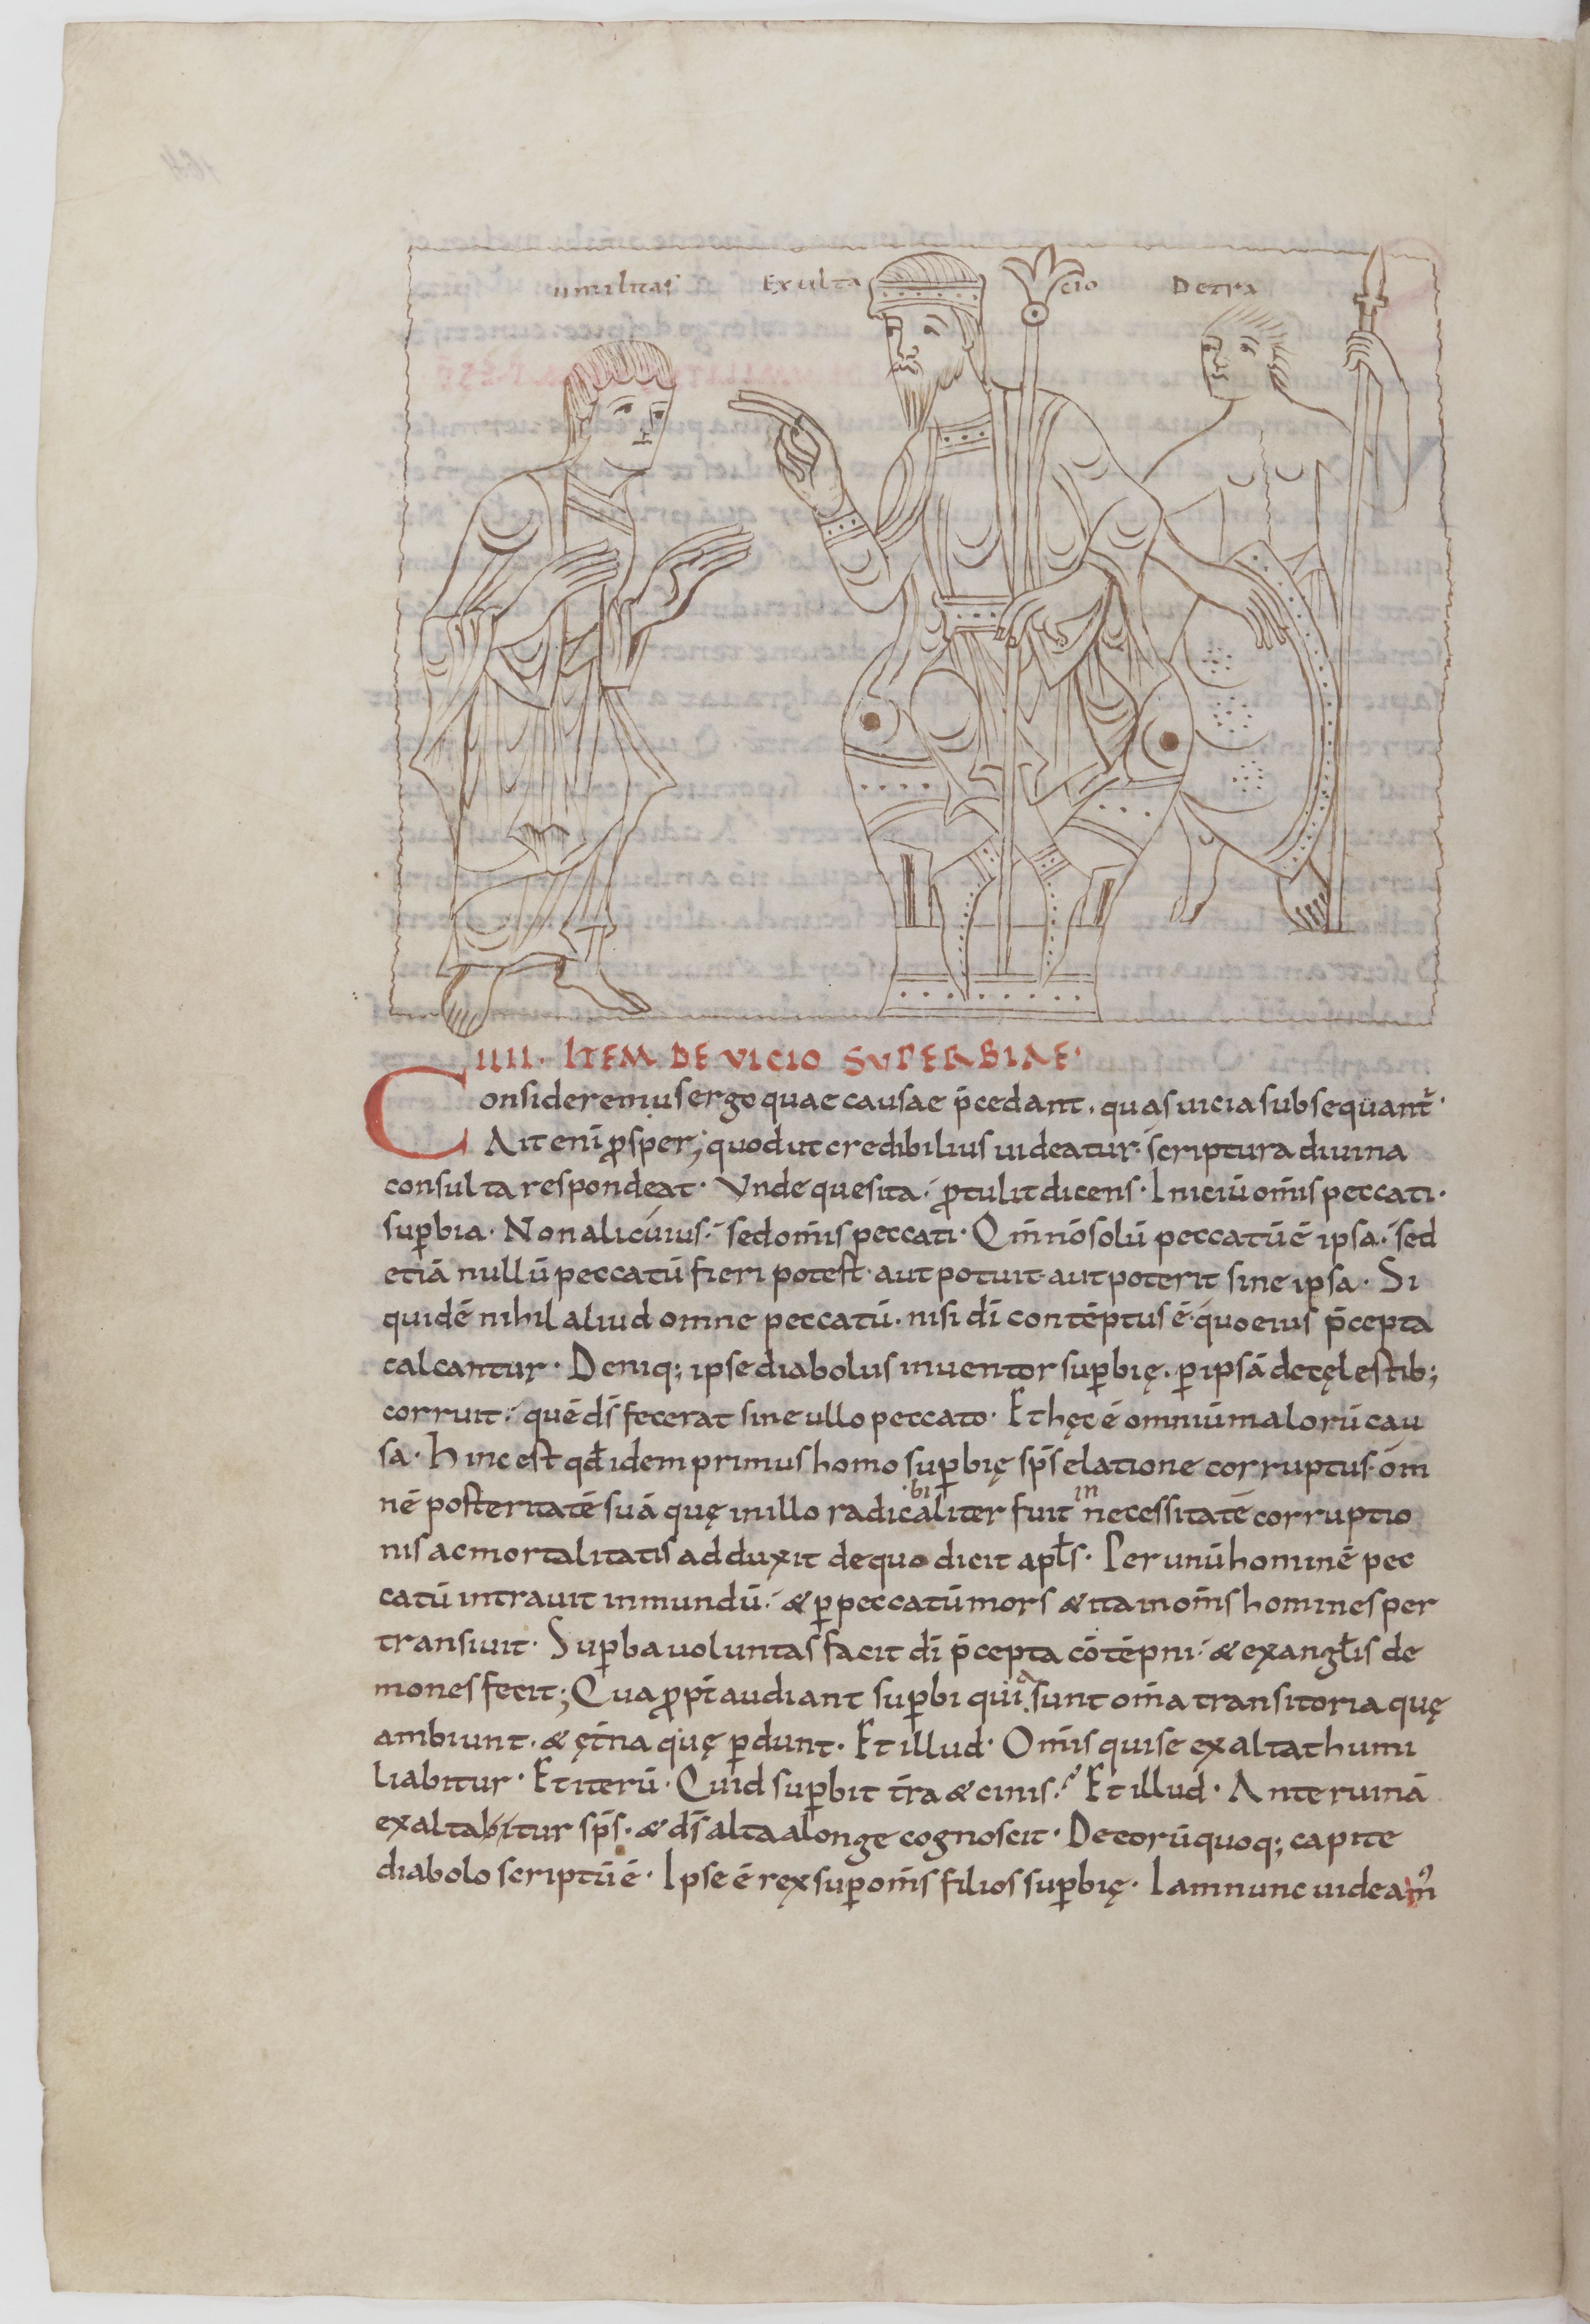 umilitas Exulta cio Detra
IIII. ITEM DE VICIO SUPERBIAE.
Consideremus ergo quae causae p̄cedant. quas uicia subsequant᷑.
Ait eni ꝓsper; quod ut credibilius uideatur. scriptura diuina
consulta respondeat. Vnde quesita. ꝓtulit dicens. Iniciū om̄is peccati.
suꝑbia. Non alicuius. sed om̄is peccati. Qm̄ nō solū peccatū ē ipsa. sed
etiā nullū peccatū fieri potest. aut potuit. aut poterit sine ipsa. Si
quidē nihil aliud omne peccatū. nisi dī contēptus ē. quo eius p̄cepta
calcantur. Deniq; ipse diabolus inuentor suꝑbię. ꝑ ipsā de cęlestib;
corruit. quē ds̄ fecerat sine ullo peccato. Et hęc ē omniū malorū cau
sa. Hinc est qđ idem primus homo suꝑbię sp̄s elatione corruptus. om
nē posteritatē suā quę in illo radicabiliter fuit in necessitatē corruptio
nis ac mortalitatis adduxit de quo dicit apłs. Per unū hominē pec
catū intrauit in mundū. & ꝑ peccatū mors & ita in om̄s homines per
transiuit. Suꝑba uoluntas facit dī p̄cepta cōtēpni. & ex angłis de
mones fecit; Quaꝓpt̄ audiant suꝑbi quia sunt om̄a transitoria quę
ambiunt. & ęt̄na quę ꝑdunt. Et illud. Om̄is qui se exaltat humi
liabitur. Et iterū. Quid suꝑbit t̄ra & cinis? Et illud. Ante ruinā
exaltabitur sp̄s. & ds̄ alta a longe cognoscit. De eorū quoq; capite
diabolo scriptū ē. Ipse ē rex suꝑ om̄s filios suꝑbię. Iam nunc uideam᷒